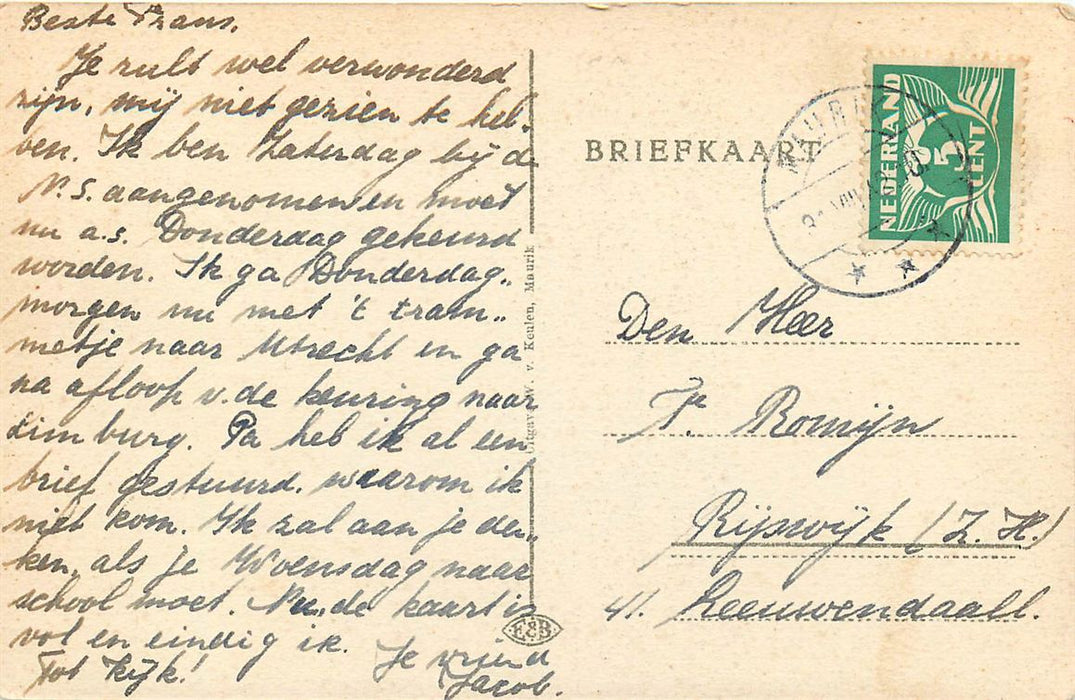 Beste Frans.
Je zult wel verwonderd
zijn, mij niet gezien te heb-
ben. Ik ben Zaterdag bij de
N.S. aangenomen en moet
nu a.s. Donderdag gekeurd
worden. Ik ga Donderdag-
morgen nu met 't tram-
metje naar Utrecht en ga
na afloop v.de keuring naar
Limburg. Pa heb ik al een
brief gestuurd. waarom ik
niet kom. Ik zal aan je den-
ken, als je Woensdag naar
school moet. Nu, de kaart is
vol en eindig ik.
Tot kijk!
Je vriend
Jacob.
Uitgave W. v. Keulen, Maurik
E&B
BRIEFKAART
MAURIK
NEDERLAND
5
CENT
Den Heer
Fr. Romijn
Rijswijk (Z.H.)
411. Leeuwendaall.